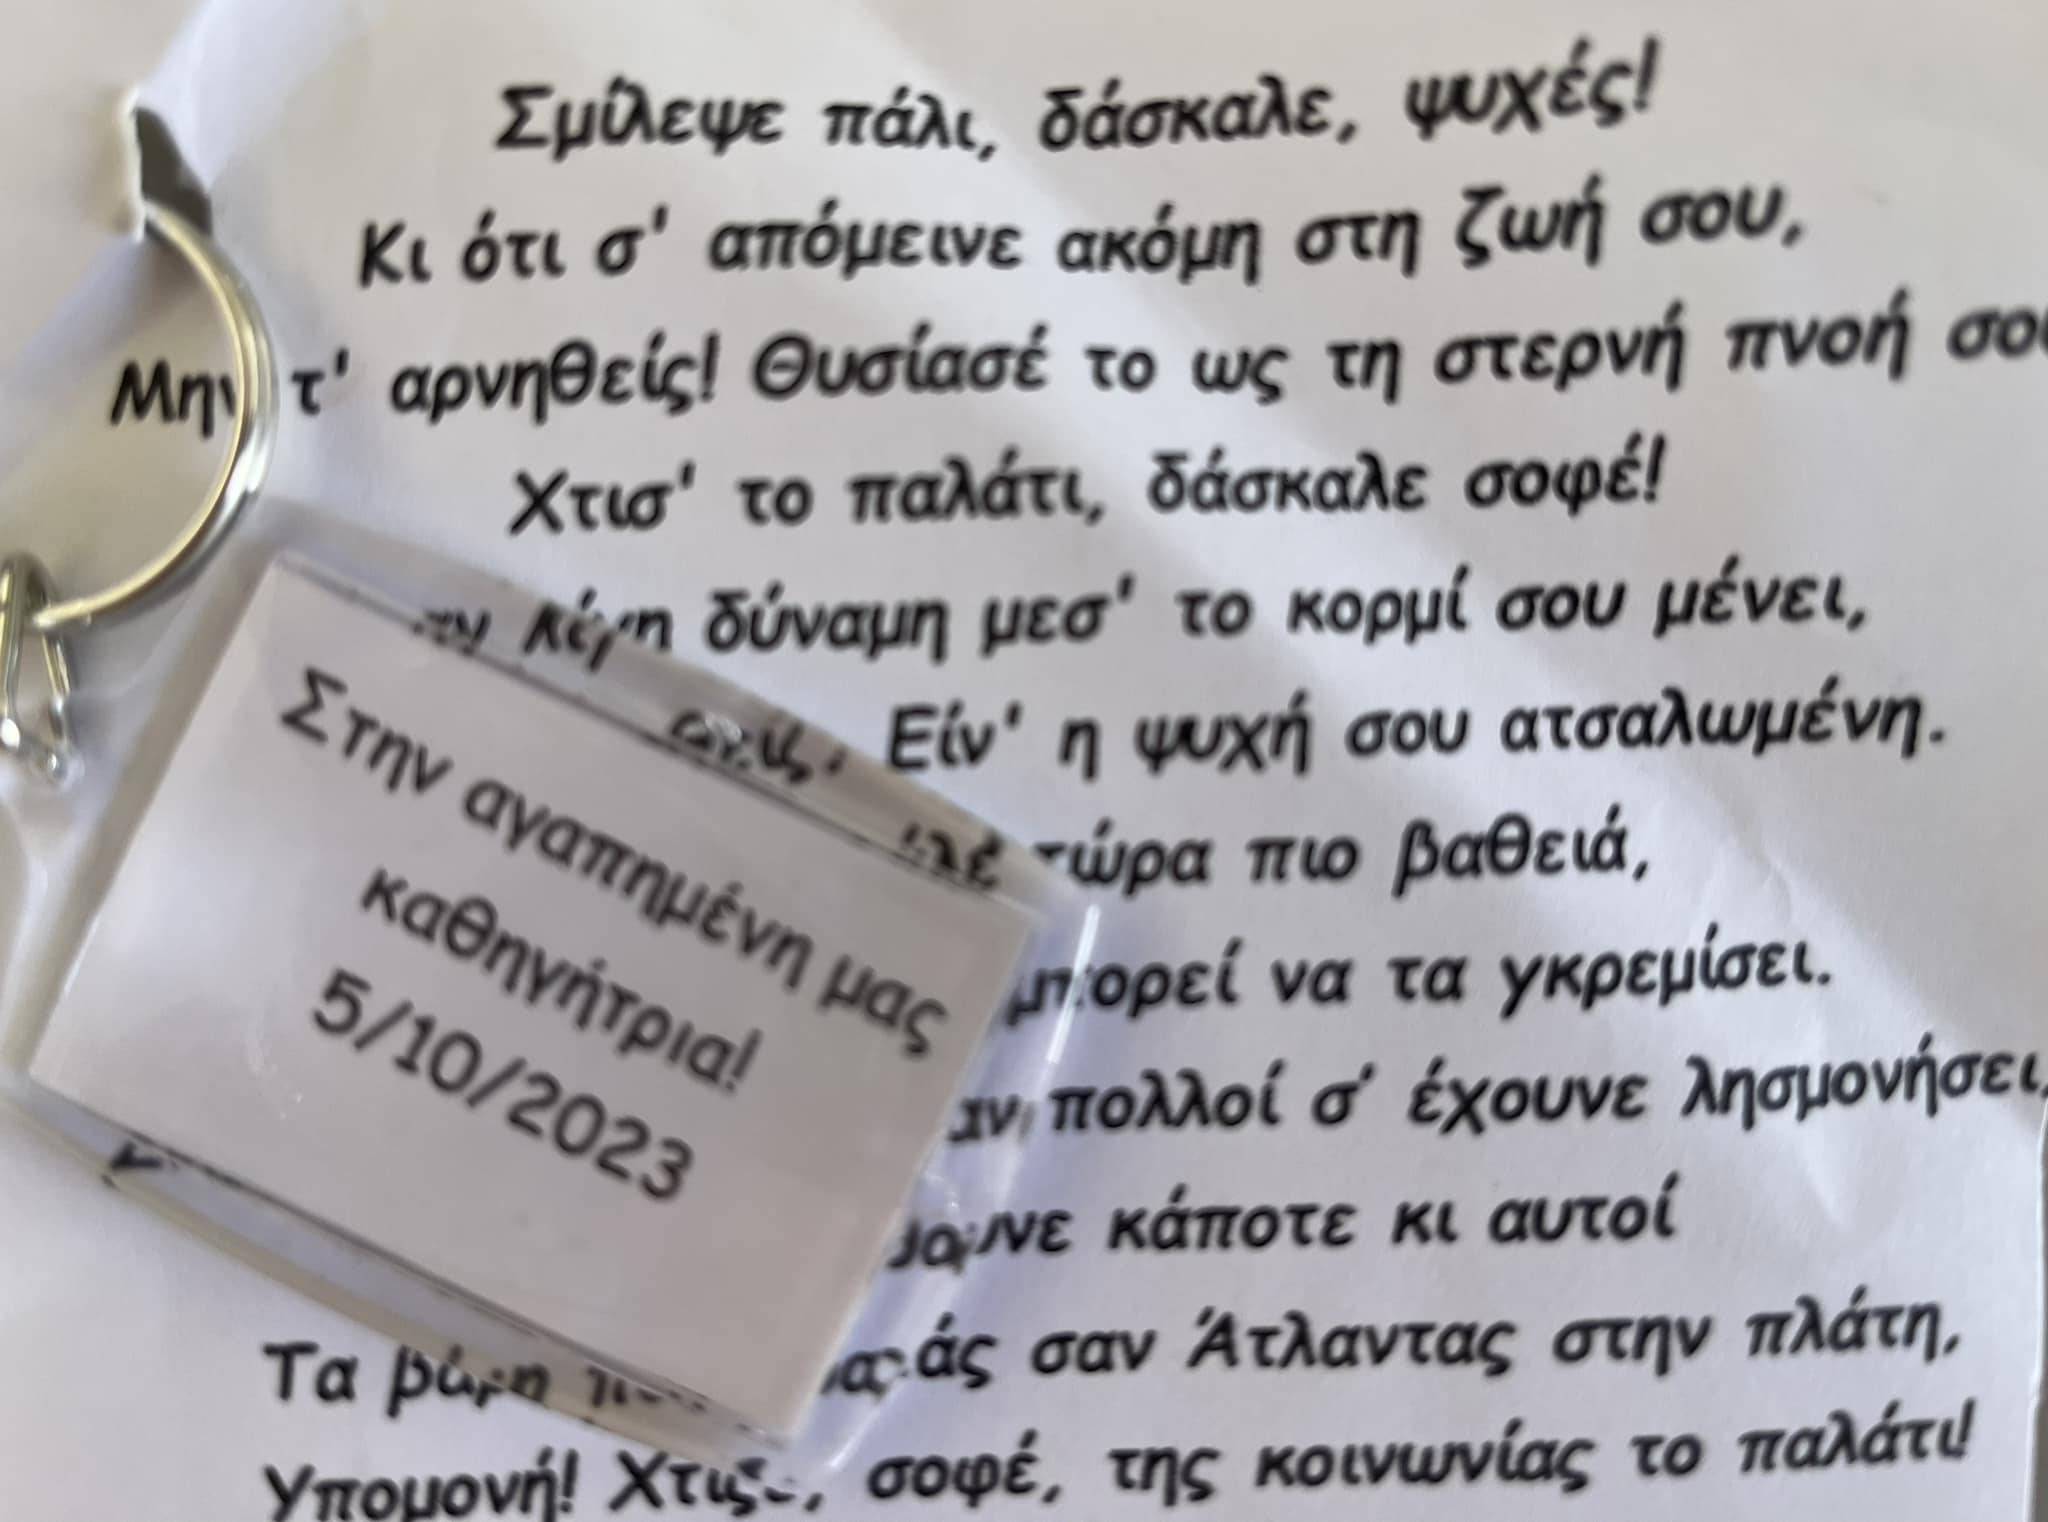 Σμίλεψε πάλι, δάσκαλε, ψυχές!
Κι ότι σ' απόμεινε ακόμη στη ζωή σου,
Μην τ' αρνηθείς! Θυσίασέ το ως τη στερνή πνοή σου
Χτισ' το παλάτι, δάσκαλε σοφέ!
λίγη δύναμη μεσ' το κορμί σου μένει,
Είν' η ψυχή σου ατσαλωμένη.
τώρα πιο βαθειά,
μπορεί να τα γκρεμίσει.
αν πολλοί σ' έχουνε λησμονήσει,
κάποτε κι αυτοί
Τα βάρη σαν Άτλαντας στην πλάτη,
Υπομονή! Χτίζε, σοφέ, της κοινωνίας το παλάτι!
Στην αγαπημένη μας
καθηγήτρια!
5/10/2023